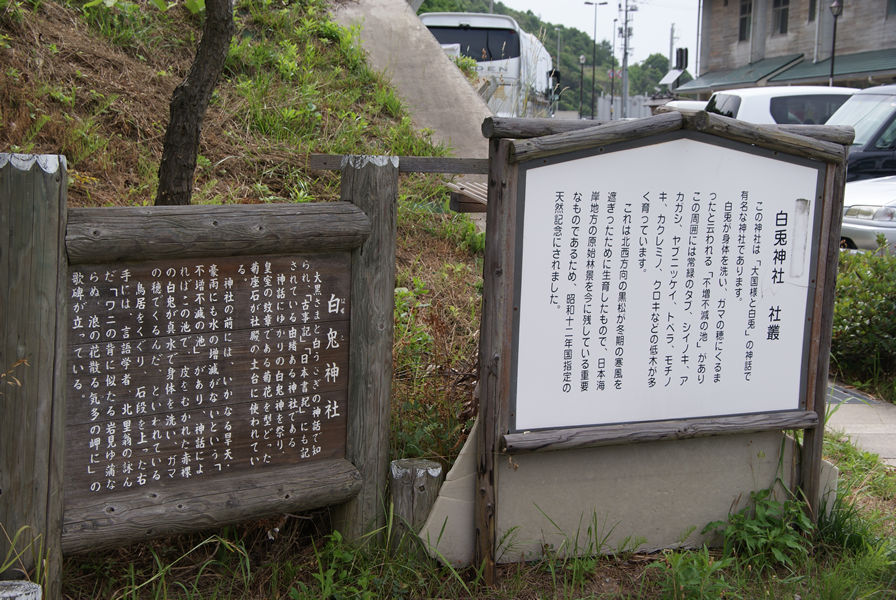 白兎神社 社叢
この神社は、「大国様と白兎」の神話で
有名な神社であります。
白兎が身体を洗い、ガマの穂にくるま
ったと云われる「不増不減の池」があり
この周囲には常緑のタブ、シイノキ、ア
カガシ、ヤブニッケイ、トベラ、モチノ
キ、カクレミノ、クロキなどの低木が多
く育っています。
これは北西方向の黒松が冬期の寒風を
遮ぎったために生育したもので、日本海
岸地方の原始林景を今に残している重要
なものであるため、昭和十二年国指定の
天然記念にされました。
白兎神社
大黒さまと白うさぎの神話で知
られ、「古事記」「日本書記」にも記
されている由緒ある神社である。
神話にゆかりの白兎神を祭り、
皇室の紋章である菊花を型どった
菊座石が社殿の土台に使われてい
る。
神社の前には、いかなる旱天・
豪雨にも水の増減がないという「
不増不減の池」があり、神話によ
ればこの池で、皮をむかれた赤裸
の白兎が真水で身体を洗い、ガマ
の穂でくるんだ、といわれている
鳥居をくぐり、石段を上った右
手には、言語学者、北里翁の詠ん
だ「ワニの背に似たる岩見ゆ蒲な
らぬ 浪の花散る気多の岬に」の
歌碑が立っている。
DEN